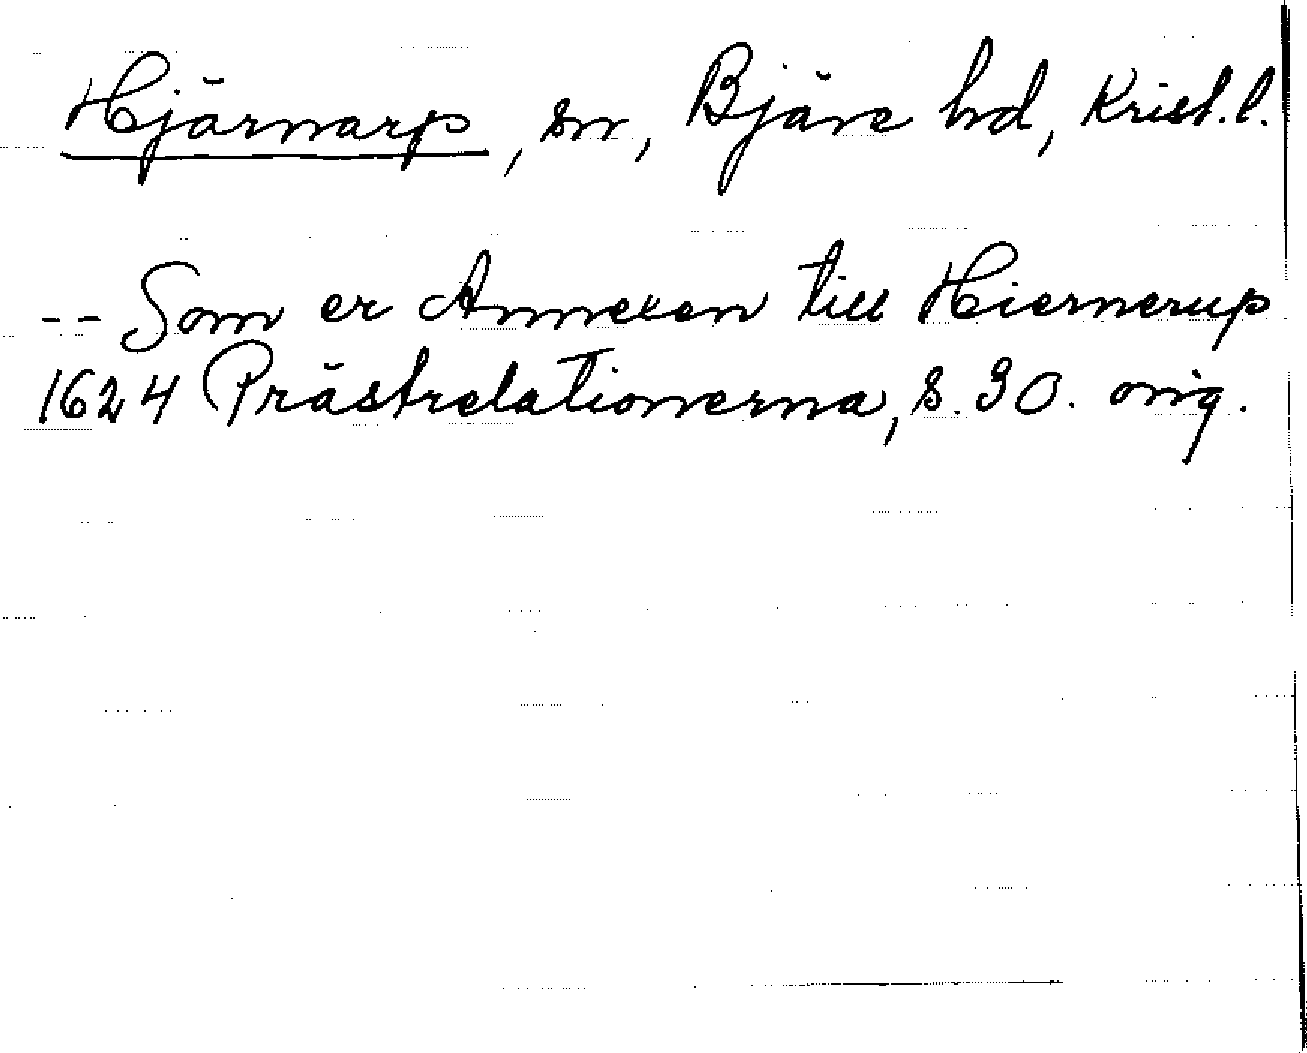 Hjärnarp, sn, Bjäre hd, Krist. l.
-- Som er Annexen till Hiernerup
1624 Prästrelationerna, s. 30. orig.